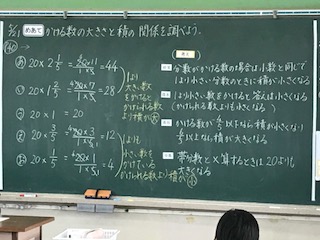 2/21 めあて かける数の大きさと積の関係を調べよう。
あ 20×2 1/5 = 20×11/1×5 = 44
い 20×1 2/5 = 20×7/1×5 = 28
う 20×1 = 20
え 20×3/5 = 20×3/1×5 = 12
お 20×1/5 = 20×1/1×5 = 4
1より
大きい数を
かけると
かけられる数
より積が大
1よりも
小さい数を
かけている
かけられる数より
積が小
分数がかける数の場合は小数と同じで
1より小さい分数のときに積が小さくなる
1より小さい数をかけると答えは小さくなる
(かけられる数よりも小さくなる)
かける数が
以下なら積が小さくなり
以上なら積が大きくなる
帯分数と×算するときは20よりも
大きくなる